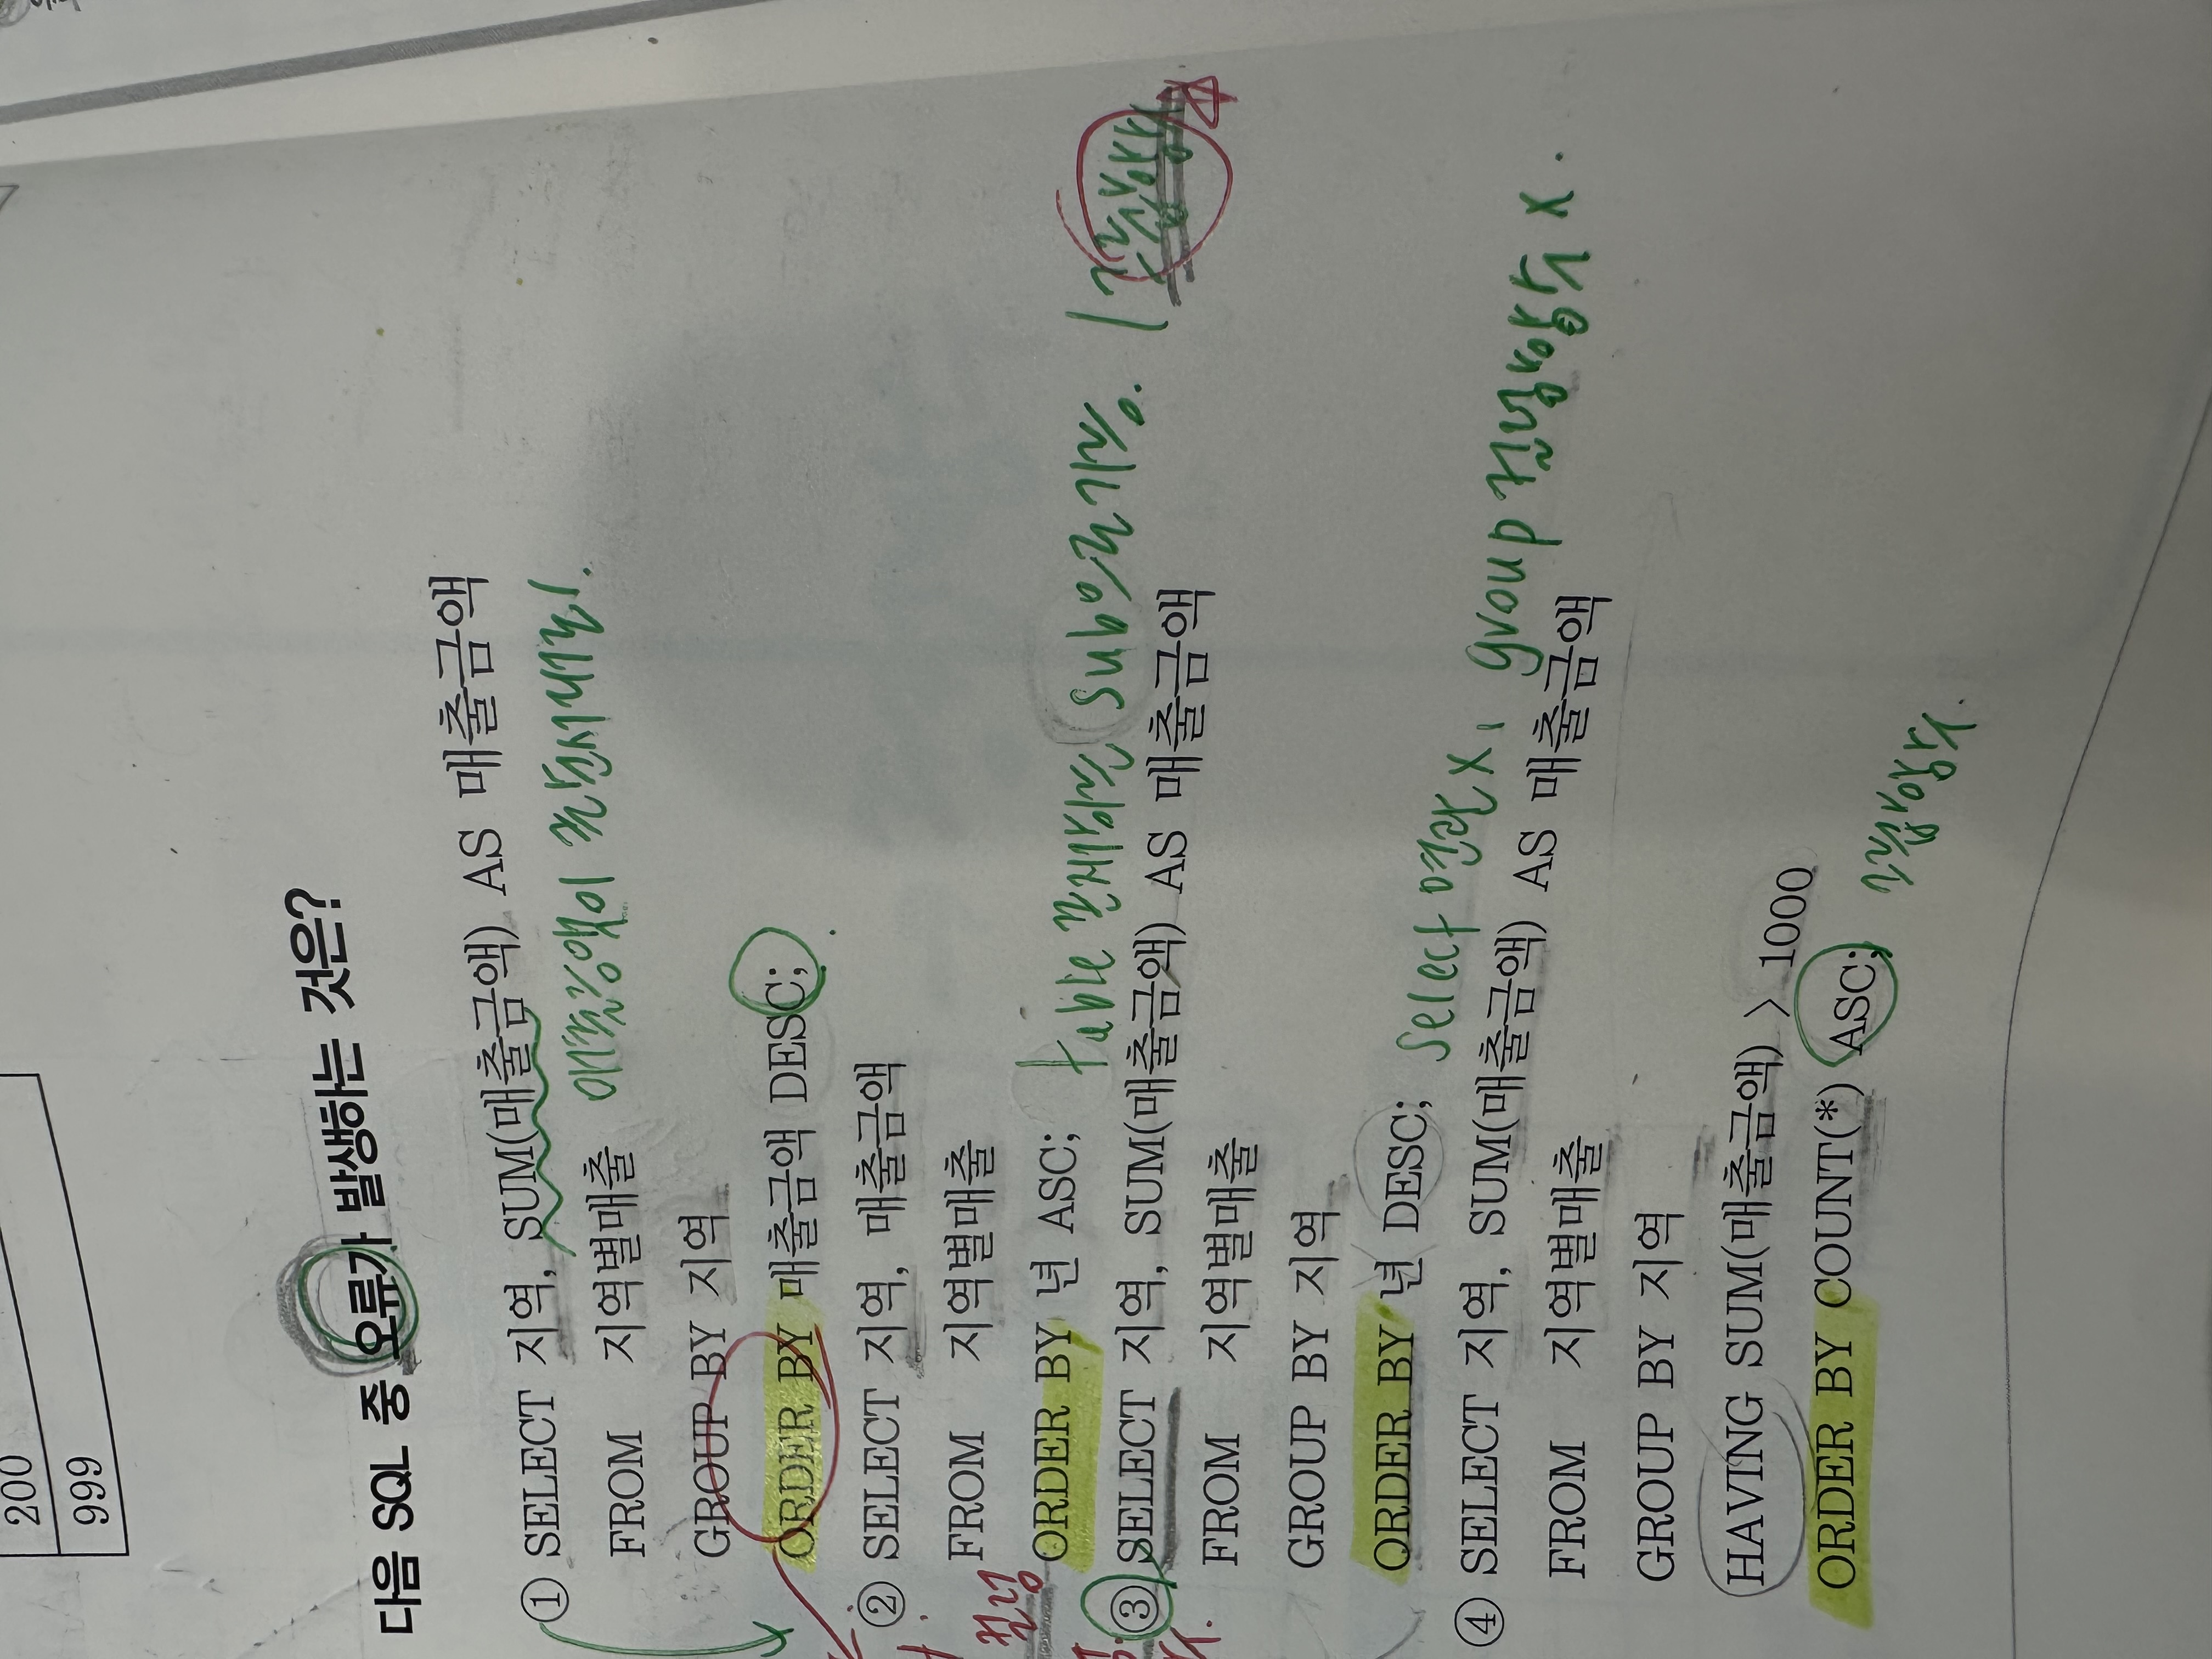 200
999
다음 SQL 중 오류가 발생하는 것은?
① SELECT 지역, SUM(매출금액) AS 매출금액
매출금액이 존재해야!
FROM 지역별매출
GROUP BY 지역
ORDER BY 매출금액 DESC;
② SELECT 지역, 매출금액
FROM 지역별매출
ORDER BY 년 ASC;
table 존재하면 sub에 존재.
칼럼
③ SELECT 지역, SUM(매출금액) AS 매출금액
FROM 지역별매출
GROUP BY 지역
ORDER BY 년 DESC;
select 연관 X, group 집합함수 X.
④ SELECT 지역, SUM(매출금액) AS 매출금액
FROM 지역별매출
GROUP BY 지역
HAVING SUM(매출금액) > 1000
ORDER BY COUNT(*) ASC;
집합함수.